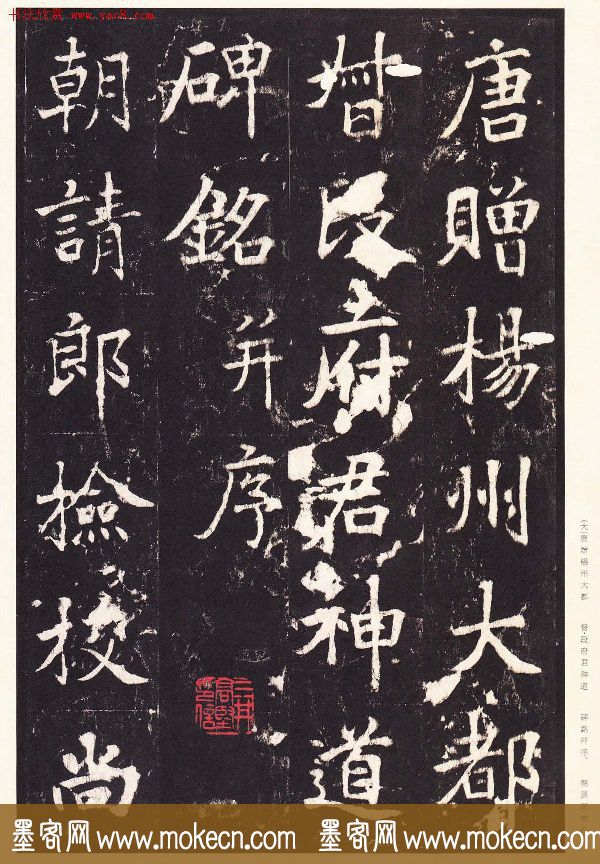 书法欣赏 www.yac8.com
唐贈楊州大都
督段府君神道
碑銘并序
朝請郎檢校尚
(大)唐贈楊州大都 督·段府君神道 碑銘并序。 朝請
墨客网 www.mokecn.com 墨客网 www.mokecn.com